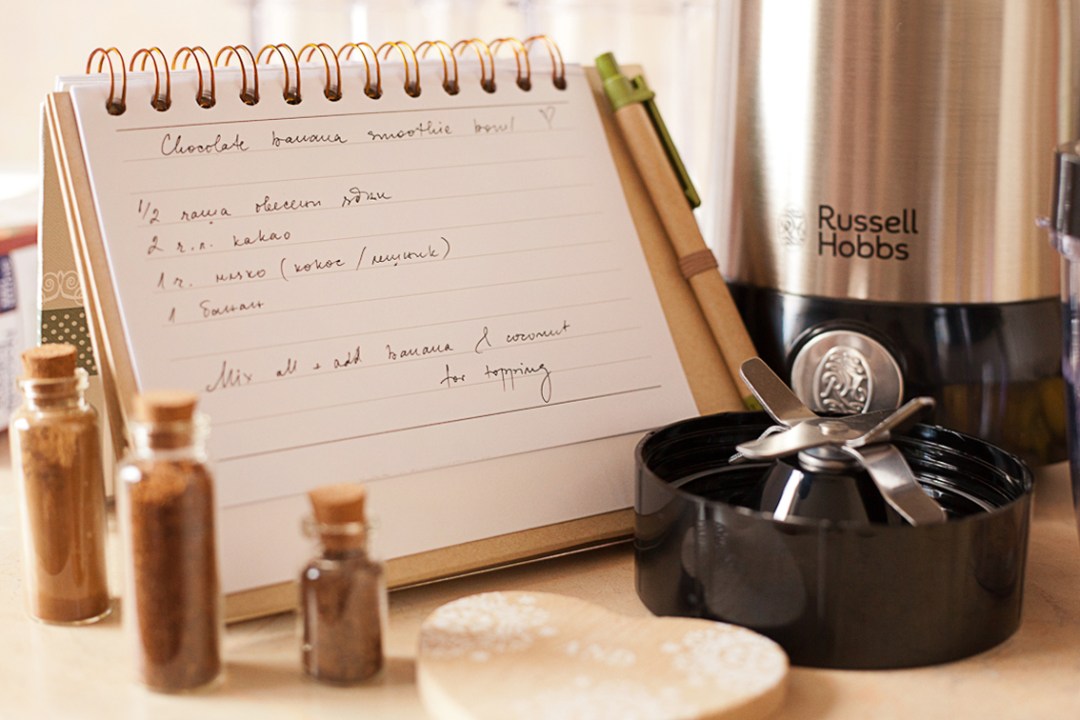 Chocolate banana smoothie bowl ♡
1/2 чаша овесени ядки
2 ч.л. какао
1 ч. мляко (кокос / лешник)
1 банан
Mix all + add banana & coconut
for topping
Russell
Hobbs